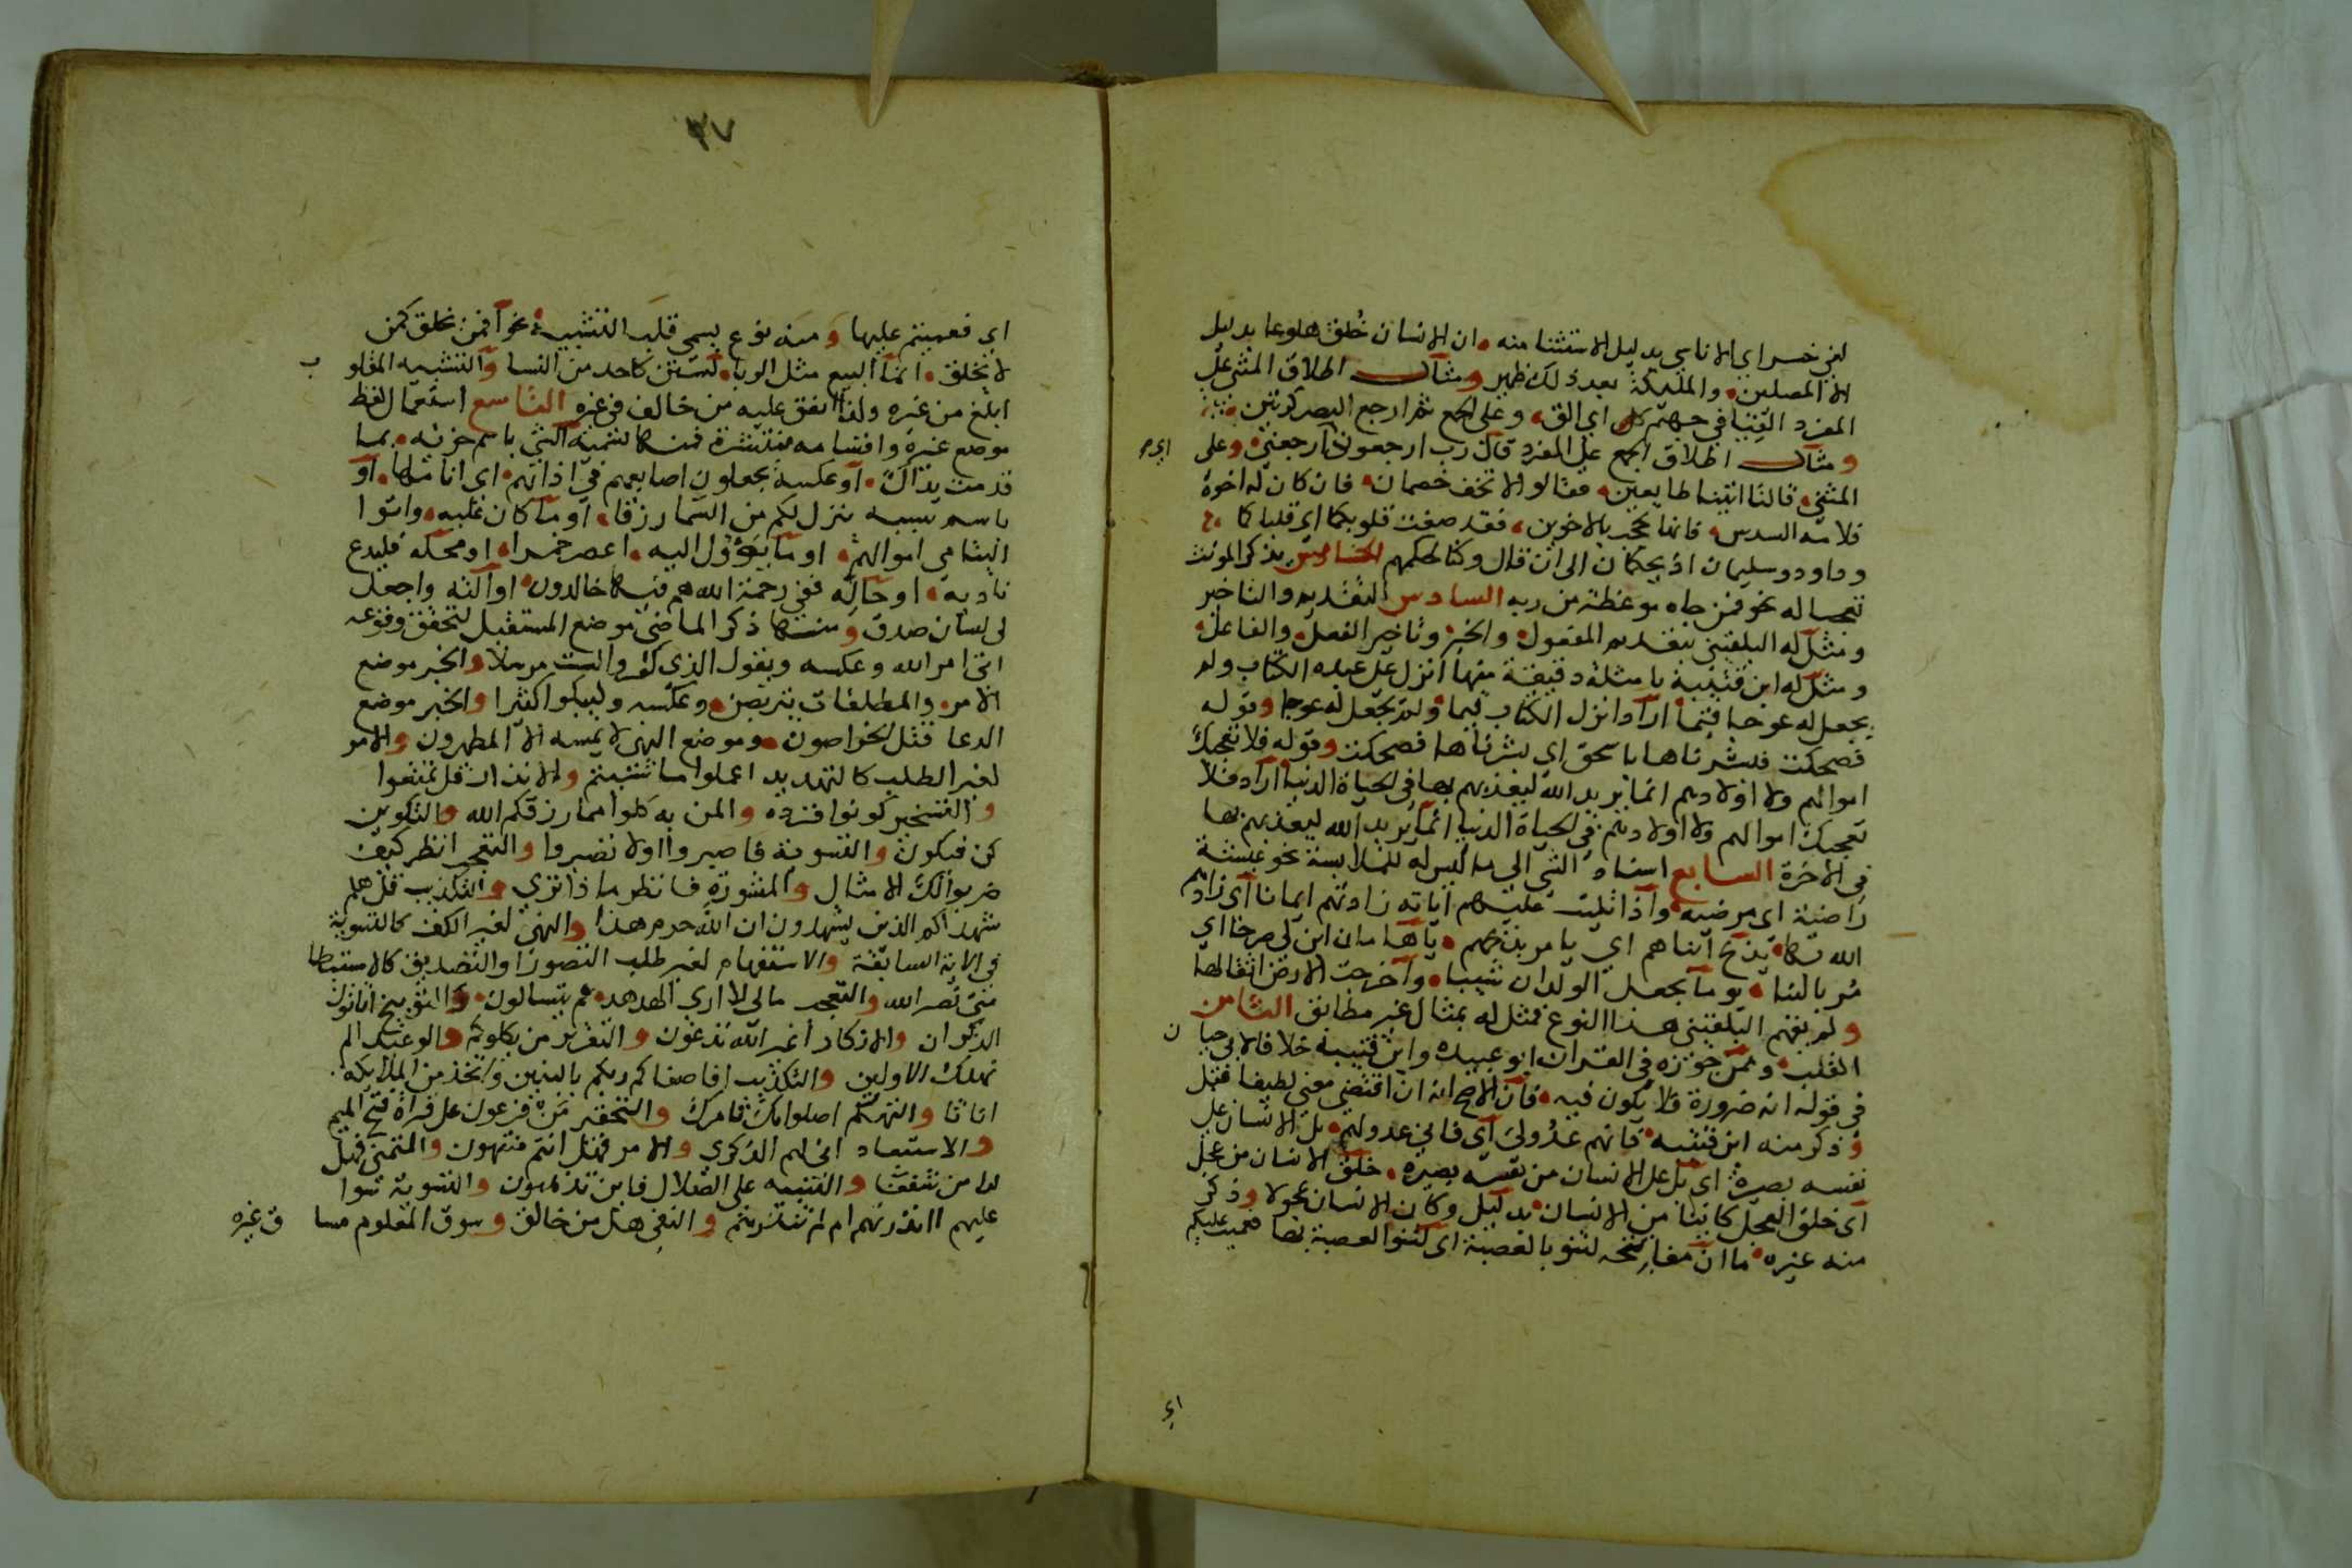 لفي خسر اي الاناسي بدليل الاستثنا منه ان الانسان خلق هلوعا بدليل
الا المصلين والمليكة بعد ذلك ظهير ومثال اطلاق المثني علي
المفرد القيا في جهنم كل اي الق وعلى الجمع ثم ارجع البصر كرتين
ومثال اطلاق الجمع على المفرد قال رب ارجعون اي ارجعني وعلى
المثني قالتا اتينا طايعين فقالوا لا تخف خصمان فان كان له اخوة
فلامه السدس فانها تحجب بالاخوين فقد صغت قلوبكما اي قلباكما
وداود وسليمان اذ يحكمان الى ان قال وكنا لحكمهم الخامس تذكر المونث
تفخيما له نحو فمن جاه موعظة من ربه السادس التقديم والتاخير
ومثل له البلقيني بتقديم المفعول والخبر وتاخير الفعل والفاعل
ومثل له ابن قتيبة بامثلة دقيقة منها انزل على عبده الكتاب ولم
يجعل له عوجا قيما اراد انزل الكتاب قيما ولم يجعل له عوجا وقوله
فضحكت فبشرناها باسحق اي بشرناها فضحكت وقوله فلا تعجبك
اموالهم ولا اولادهم انما يريد الله ليعذبهم بها في الحياة الدنيا اراد فلا
تعجبك اموالهم ولا اولادهم في الحياة الدنيا انما يريد الله ليعذبهم بها
في الاخرة السابع اسناد الشي الى ما ليس له لملابسة نحو عيشة
راضية اي مرضيه واذا تليت عليهم اياته زادتهم ايمانا اي زادهم
الله بها يذبح ابناهم اي يامر بذبحهم يا هامان ابن لي صرحا اي
مر بالبنا يوما يجعل الولدان شيبا واخرجت الارض اثقالها
ولم يفهم البلقيني هذا النوع فمثل له بمثال غير مطابق الثامن
القلب وممن جوزه في القران ابو عبيده وابن قتيبة خلافا لابي حيان
في قوله انه ضرورة فلا يكون فيه فان الاصح انه ان اقتضي معني لطيفا قبل
وذكر منه ابن قتيبه فانهم عدو لي اي فاني عدو لهم بل الانسان على
نفسه بصيرة اي بل على الانسان من نفسه بصيره خلق الانسان من عجل
اي خلق العجل كاينا من الانسان بدليل وكان الانسان عجولا وذكر
منه غيره ما ان مفاتحه لتنو بالعصبة اي لتنو العصبة بها فعميت عليكم
اي
٣٧
اي فعميتم عليها ومنه نوع يسمي قلب التشبيه نحو افمن يخلق كمن
لا يخلق انما البيع مثل الربا لستن كاحد من النسا والتشبيه المقلوب
ابلغ من غيره ولذا اتفق عليه من خالف في غيره التاسع استعمال لفظ
موضع غيره واقسامه منتشرة فمنها تسمية الشي باسم جزيه بما
قدمت يداك او عكسه يجعلون اصابعهم في اذانهم اي اناملها او
باسم سببه ينزل لكم من السما رزقا او ما كان عليه واتوا
اليتامي اموالهم او ما يؤول اليه اعصر خمرا او محله فليدع
ناديه او حاله ففي رحمة الله هم فيها خالدون او الته واجعل
لي لسان صدق ومنها ذكر الماضي موضع المستقبل لتحقق وقوعه
اتي امر الله وعكسه ويقول الذي كفروا لست مرسلا والخبر موضع
الامر والمطلقات يتربصن وعكسه وليبكوا كثيرا والخبر موضع
الدعا قتل الخراصون وموضع النهي لا يمسه الا المطهرون والامر
لغير الطلب كالتهديد اعملوا ما شئتم والانذار قل تمتعوا
والتسخير كونوا قردة والمن به كلوا مما رزقكم الله والتكوين
كن فيكون والتسوية فاصبروا اولا تصبروا والتعجب انظر كيف
ضربوا لك الامثال والمشورة فانظر ماذا تري والتكذيب قل هلم
شهداكم الذين يشهدون ان الله حرم هذا والنهي لغير الكف كالتسوية
في الاية السابقة والاستفهام لغير طلب التصور او التصديق كالاستبطا
متي نصر الله والتعجب مالي لا اري الهدهد عم يتسالون والتوبيخ اتاتون
الذكران والانكار اغير الله تدعون والتقرير من يكلوكم والوعيد الم
نهلك الاولين والتكذيب افاصفاكم ربكم بالبنين واتخذ من الملايكه
اناثا والتهكم اصلواتك تامرك والتحقير من فرعون على قراة فتح الميم
والاستبعاد اني لهم الذكري والامر فهل انتم منتهون والتمني فهل
لنا من شفعا والتنبيه على الضلال فاين تذهبون والتسوية سوا
عليهم ااندرتهم ام لم تنذرهم والنفي هل من خالق وسوق المعلوم مساق غيره